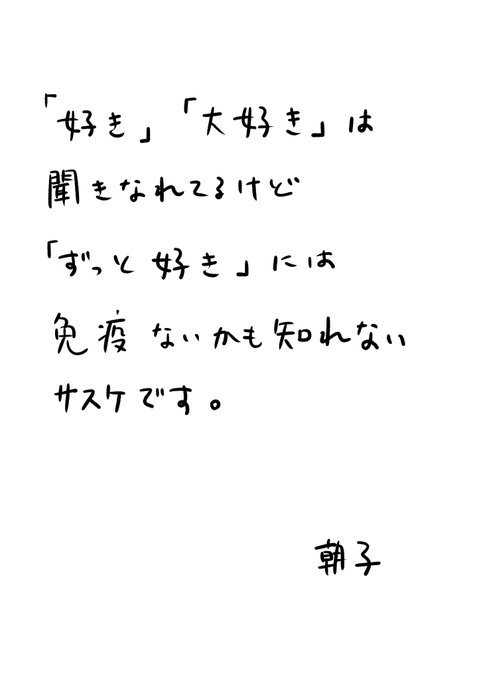 「好き」「大好き」は
聞きなれてるけど
「ずっと好き」には
免疫ないかも知れない
サスケです。
朝子